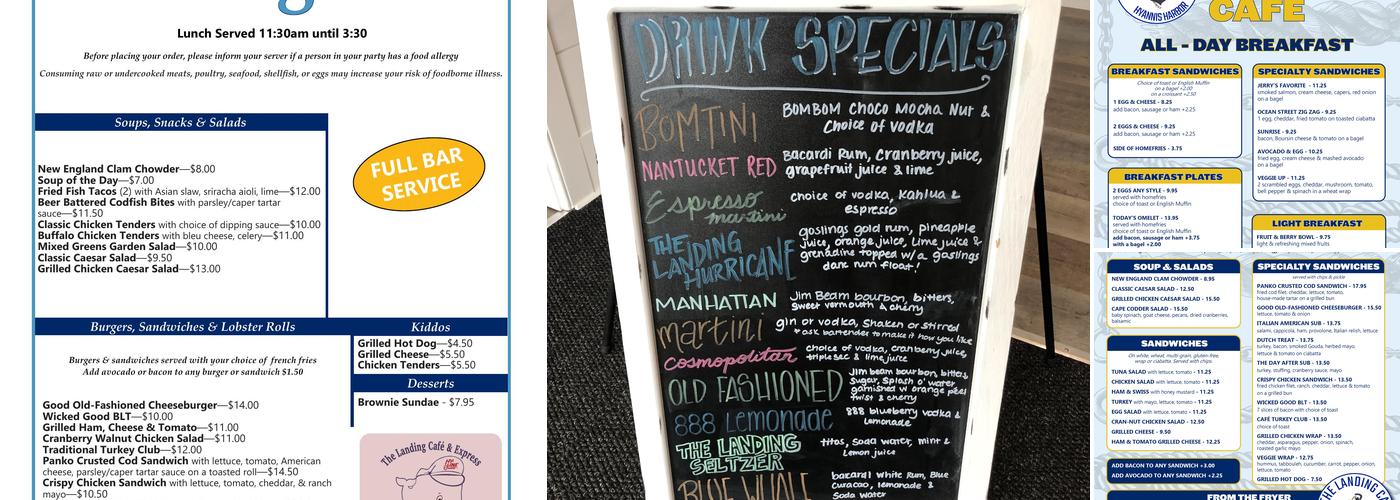 Lunch Served 11:30am until 3:30
Before placing your order, please inform your server if a person in your party has a food allergy
Consuming raw or undercooked meats, poultry, seafood, shellfish, or eggs may increase your risk of foodborne illness.
Soups, Snacks & Salads
New England Clam Chowder—$8.00
Soup of the Day—$7.00
Fried Fish Tacos (2) with Asian slaw, sriracha aioli, lime—$12.00
Beer Battered Codfish Bites with parsley/caper tartar
sauce—$11.50
Classic Chicken Tenders with choice of dipping sauce—$10.00
Buffalo Chicken Tenders with bleu cheese, celery—$11.00
Mixed Greens Garden Salad—$10.00
Classic Caesar Salad—$9.50
Grilled Chicken Caesar Salad—$13.00
FULL BAR
SERVICE
Burgers, Sandwiches & Lobster Rolls
Burgers & sandwiches served with your choice of french fries
Add avocado or bacon to any burger or sandwich $1.50
Good Old-Fashioned Cheeseburger—$14.00
Wicked Good BLT—$10.00
Grilled Ham, Cheese & Tomato—$11.00
Cranberry Walnut Chicken Salad—$11.00
Traditional Turkey Club—$12.00
Panko Crusted Cod Sandwich with lettuce, tomato, American
cheese, parsley/caper tartar sauce on a toasted roll—$14.50
Crispy Chicken Sandwich with lettuce, tomato, cheddar, & ranch
mayo—$10.50
Kiddos
Grilled Hot Dog—$4.50
Grilled Cheese—$5.50
Chicken Tenders—$5.50
Desserts
Brownie Sundae - $7.95
The Landing Café & Express
DRINK SPECIALS
BOMTINI BOMBOM Choco Mocha Nut &
Choice of vodka
NANTUCKET RED Bacardi Rum, Cranberry juice,
grapefruit juice & lime
Espresso martini choice of vodka, Kahlua &
espresso
THE LANDING HURRICANE goslings gold rum, pineapple
juice, orange juice, lime juice &
grenadine topped w/ a goslings
dark rum float!
MANHATTAN Jim Beam bourbon, bitters,
sweet vermouth & cherry
martini gin or vodka, shaken or stirred
* ask bartender to make it how you like
cosmopolitan choice of vodka, cranberry juice,
triple sec & lime juice
OLD FASHIONED Jim beam bourbon, bitters,
sugar, splash o' water
garnished w orange peel
twist & cherry
888 Lemonade 888 blueberry vodka &
Lemonade
THE LANDING SELTZER titos, soda water, mint &
Lemon juice
BLUE WHALE bacardi white rum, Blue
Curacao, lemonade &
Soda water
HYANNIS HARBOR
CAFE
ALL - DAY BREAKFAST
BREAKFAST SANDWICHES
Choice of toast or English Muffin
on a bagel +2.00
on a croissant +2.50
1 EGG & CHEESE - 8.25
add bacon, sausage or ham +2.25
2 EGGS & CHEESE - 9.25
add bacon, sausage or ham +2.25
SIDE OF HOMEFRIES - 3.75
BREAKFAST PLATES
2 EGGS ANY STYLE - 9.95
served with homefries
choice of toast or English Muffin
TODAY'S OMELET - 13.95
served with homefries
choice of toast or English Muffin
add bacon, sausage or ham +3.75
with a bagel +2.00
SPECIALTY SANDWICHES
JERRY'S FAVORITE - 11.25
smoked salmon, cream cheese, capers, red onion
on a bagel
OCEAN STREET ZIG ZAG - 9.25
1 egg, cheddar, fried tomato on toasted ciabatta
SUNRISE - 9.25
bacon, Boursin cheese & tomato on a bagel
AVOCADO & EGG - 10.25
fried egg, cream cheese & mashed avocado
on a bagel
VEGGIE UP - 11.25
2 scrambled eggs, cheddar, mushroom, tomato,
bell pepper & spinach in a wheat wrap
LIGHT BREAKFAST
FRUIT & BERRY BOWL - 9.75
light & refreshing mixed fruits
SOUP & SALADS
NEW ENGLAND CLAM CHOWDER - 8.95
CLASSIC CAESAR SALAD - 12.50
GRILLED CHICKEN CAESAR SALAD - 15.50
CAPE CODDER SALAD - 15.50
baby spinach, goat cheese, pecans, dried cranberries,
balsamic
SANDWICHES
On white, wheat, multi grain, gluten-free,
wrap or ciabatta. Served with chips.
TUNA SALAD with lettuce, tomato - 11.25
CHICKEN SALAD with lettuce, tomato - 11.25
HAM & SWISS with honey mustard - 11.25
TURKEY with mayo, lettuce, tomato - 11.25
EGG SALAD with lettuce, tomato - 11.25
CRAN-NUT CHICKEN SALAD - 12.50
GRILLED CHEESE - 9.50
HAM & TOMATO GRILLED CHEESE - 12.25
ADD BACON TO ANY SANDWICH +3.00
ADD AVOCADO TO ANY SANDWICH +2.25
SPECIALTY SANDWICHES
served with chips & pickle
PANKO CRUSTED COD SANDWICH - 17.95
fried cod filet, cheddar, lettuce, tomato,
house-made tartar on a grilled bun
GOOD OLD-FASHIONED CHEESEBURGER - 15.50
lettuce, tomato & onion
ITALIAN AMERICAN SUB - 13.75
salami, cappicola, ham, provolone, Italian relish, lettuce
DUTCH TREAT - 13.75
turkey, bacon, smoked Gouda, herbed mayo,
lettuce & tomato on ciabatta
THE DAY AFTER SUB - 13.50
turkey, stuffing, cranberry sauce, mayo
CRISPY CHICKEN SANDWICH - 13.50
fried chicken filet, ranch, cheddar, lettuce & tomato
on a grilled bun
WICKED GOOD BLT - 13.50
7 slices of bacon with choice of toast
CAFÉ TURKEY CLUB - 13.50
choice of toast
GRILLED CHICKEN WRAP - 13.50
cheddar, asparagus, pepper, onion, spinach,
roasted garlic mayo
VEGGIE WRAP - 12.75
hummus, tabbouleh, cucumber, carrot, pepper, onion,
lettuce, tomato
GRILLED HOT DOG - 7.50
FROM THE FRYER
THE LANDING